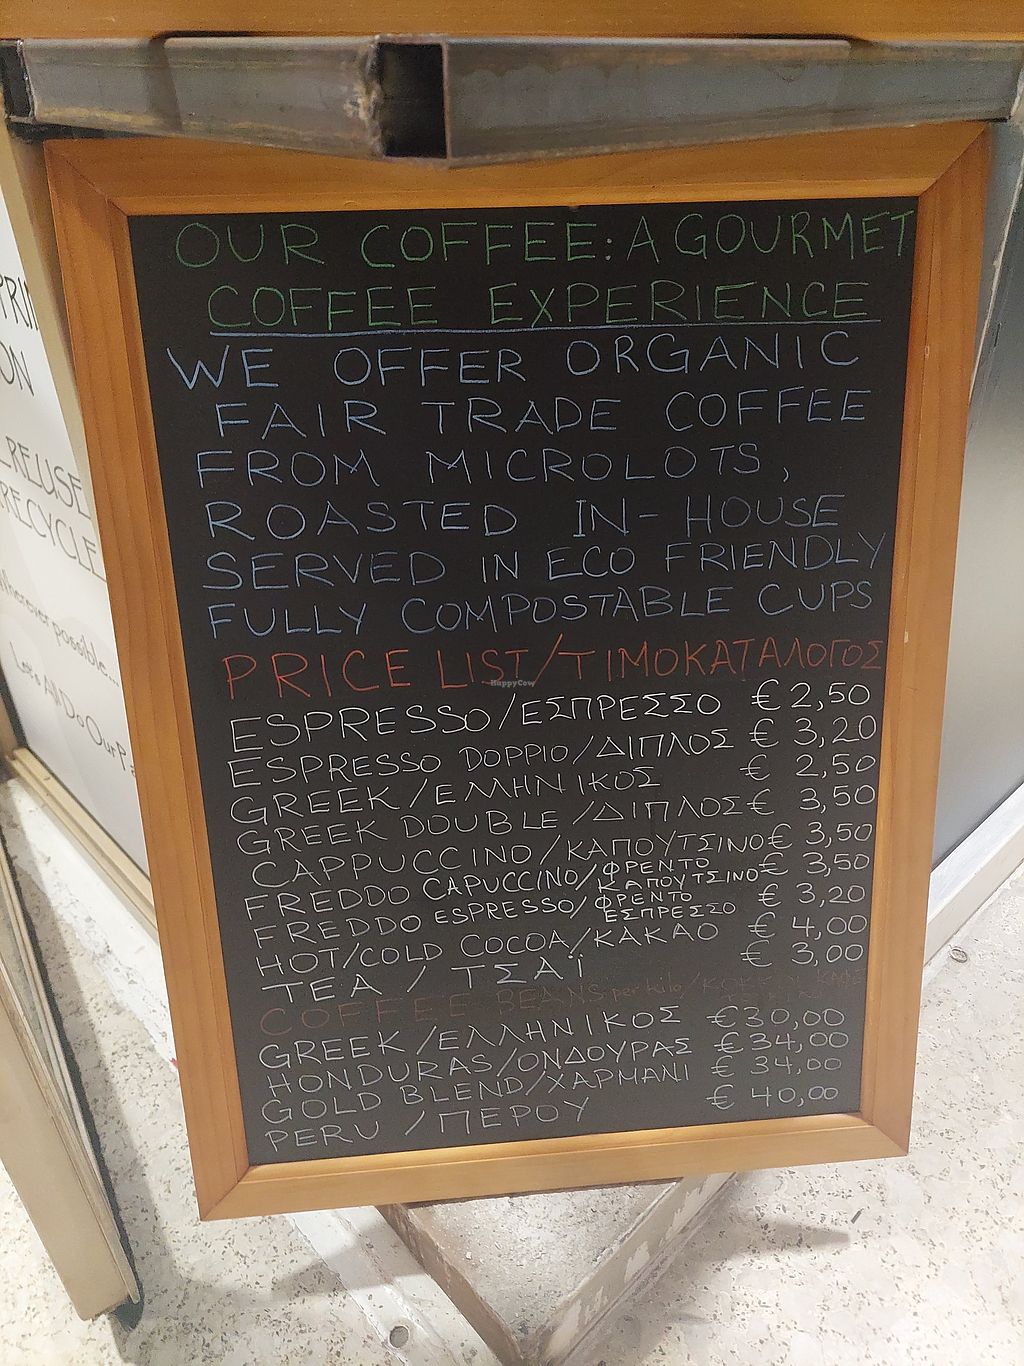 OUR COFFEE: A GOURMET
COFFEE EXPERIENCE
WE OFFER ORGANIC
FAIR TRADE COFFEE
FROM MICROLOTS,
ROASTED IN-HOUSE
SERVED IN ECO FRIENDLY
FULLY COMPOSTABLE CUPS
PRICE LIST/ΤΙΜΟΚΑΤΑΛΟΓΟΣ
ESPRESSO/ΕΣΠΡΕΣΣΟ € 2,50
ESPRESSO DOPPIO/ΔΙΠΛΟΣ € 3,20
GREEK/ΕΛΛΗΝΙΚΟΣ € 2,50
GREEK DOUBLE/ΔΙΠΛΟΣ € 3,50
CAPPUCCINO/ΚΑΠΟΥΤΣΙΝΟ € 3,50
FREDDO CAPUCCINO/ΦΡΕΝΤΟ ΚΑΠΟΥΤΣΙΝΟ € 3,50
FREDDO ESPRESSO/ΦΡΕΝΤΟ ΕΣΠΡΕΣΣΟ € 3,20
HOT/COLD COCOA/ΚΑΚΑΟ € 4,00
TEA / ΤΣΑΪ € 3,00
COFFEE BEANS per kilo/
GREEK/ΕΛΛΗΝΙΚΟΣ € 30,00
HONDURAS/ΟΝΔΟΥΡΑΣ € 34,00
GOLD BLEND/ΧΑΡΜΑΝΙ € 34,00
PERU / ΠΕΡΟΥ € 40,00
REUSE
RECYCLE
Wherever possible...
Let's All Do Our
HappyCow